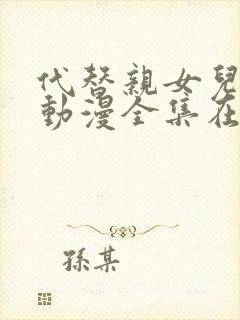 代替親女兒
動漫全集在
孫某